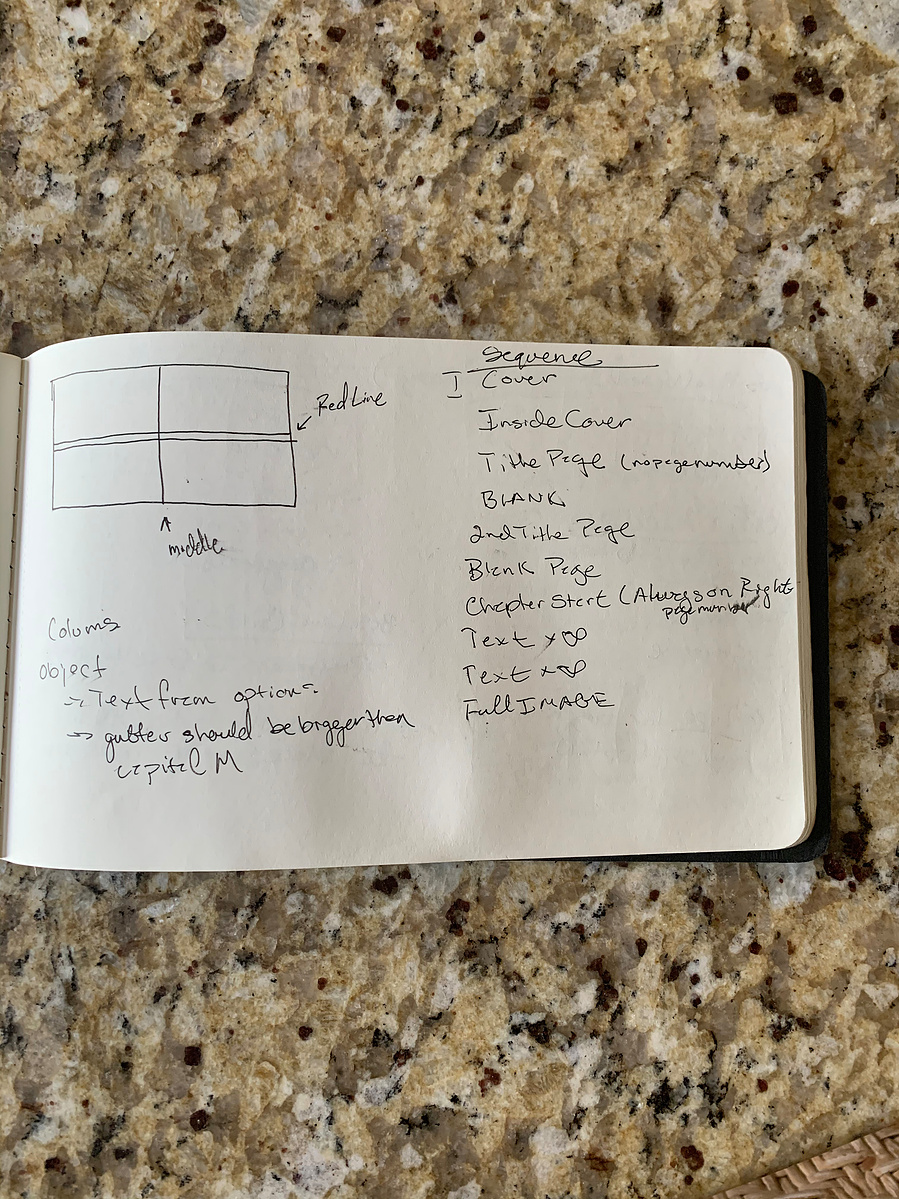 Red Line
middle
Colums
object
→ Text from options
→ gutter should be bigger than
capital M
Sequence
I Cover
Inside Cover
Title Page (no page number)
BLANK
2nd Title Page
Blank Page
Chapter Start (Always on Right
page number
Text x ∞
Text x ∞
Full IMAGE